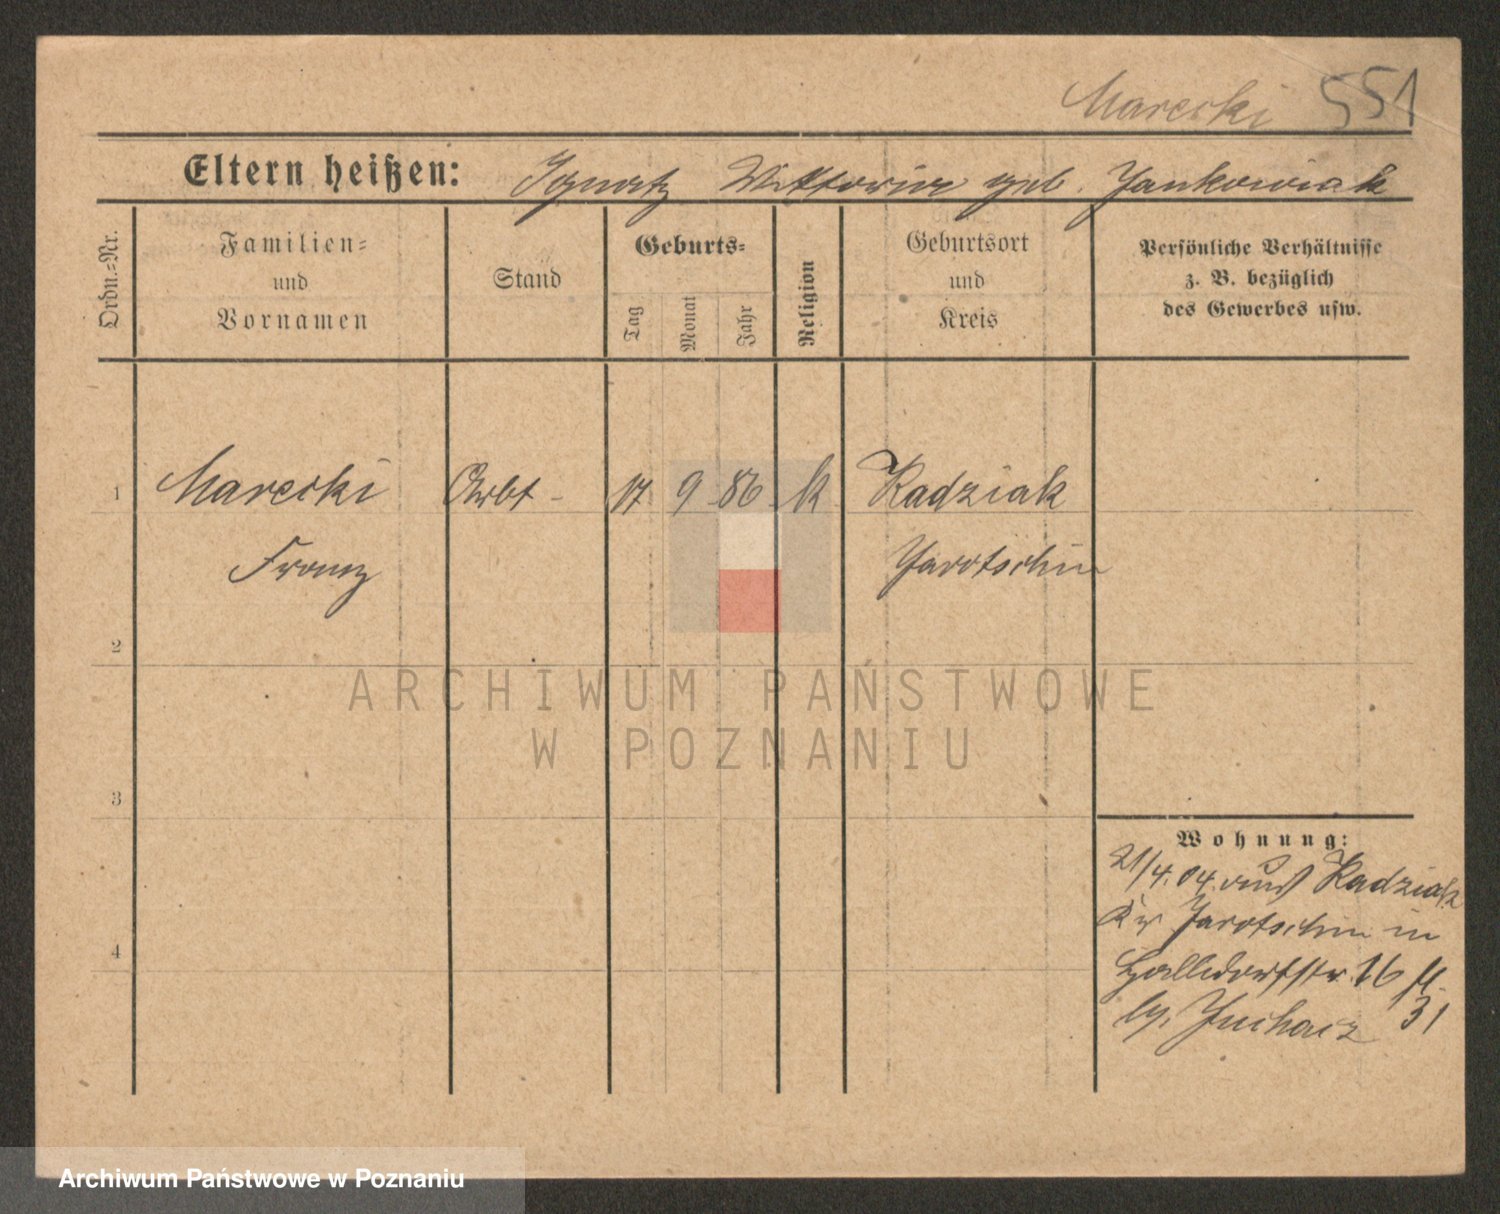 Marecki 551
Eltern heißen: Ignatz Viktoria geb. Jankowiak
Ordn.=Nr.
Familien=
und
Vornamen
Stand
Geburts=
Tag
Monat
Jahr
Religion
Geburtsort
und
Kreis
Persönliche Verhältnisse
z. B. bezüglich
des Gewerbes usw.
1 Marecki Arbt 17 9 86 k Radziak
Franz Jarotschin
2
ARCHIWUM PAŃSTWOWE
W POZNANIU
3
Wohnung:
21/4.04. aus Radziak
Kr Jarotschin in
16
31
4
Archiwum Państwowe w Poznaniu